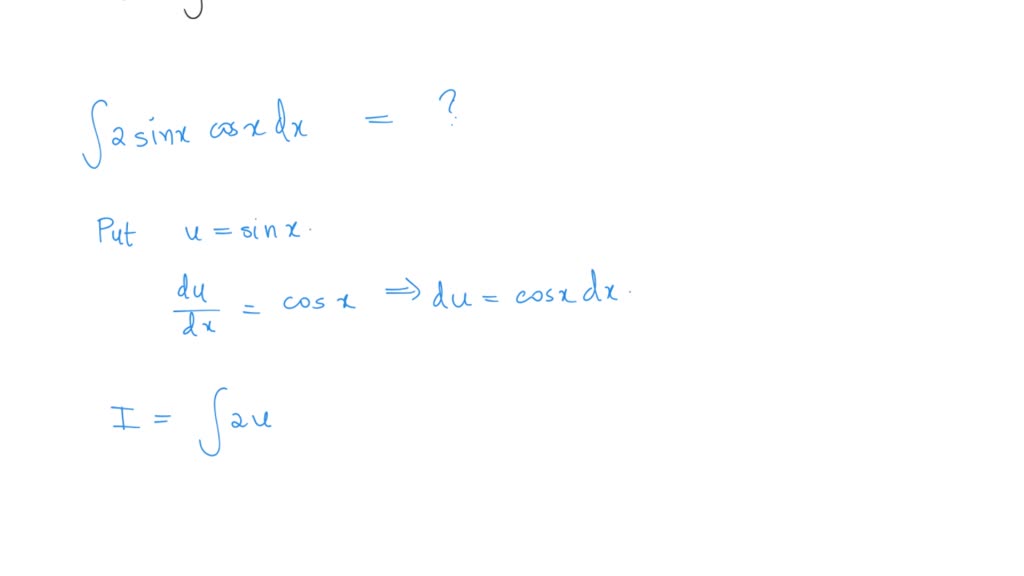 ∫2 sinx cosx dx = ?
Put u = sinx.
du/dx = cosx ⟹ du = cosx dx.
I = ∫2u